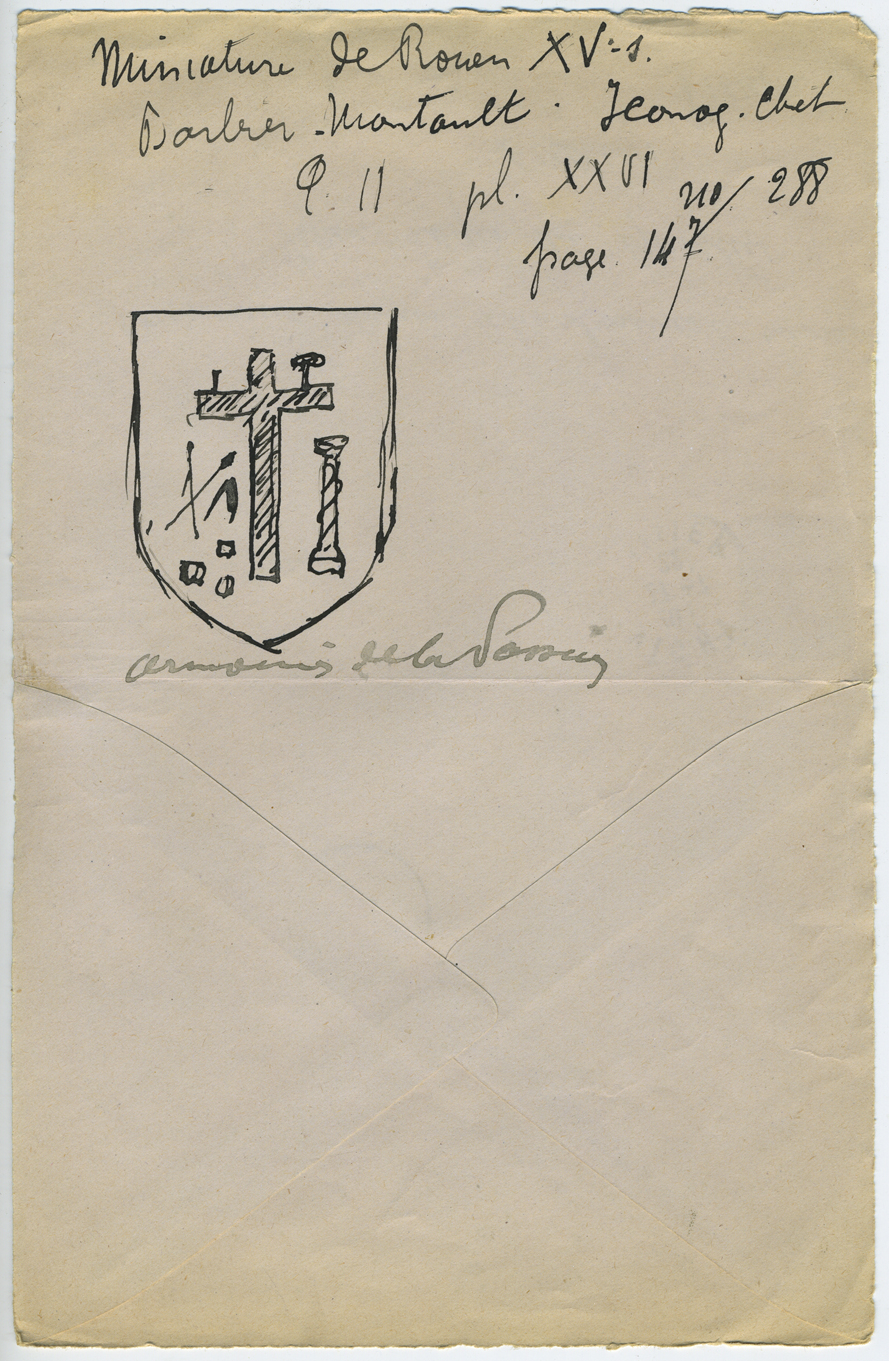 Miniature de Rouen XVe s.
Barbier-Montault. Iconog. Chret
T. II pl. XXVI no 288
page. 147.
armoiries de la Passion